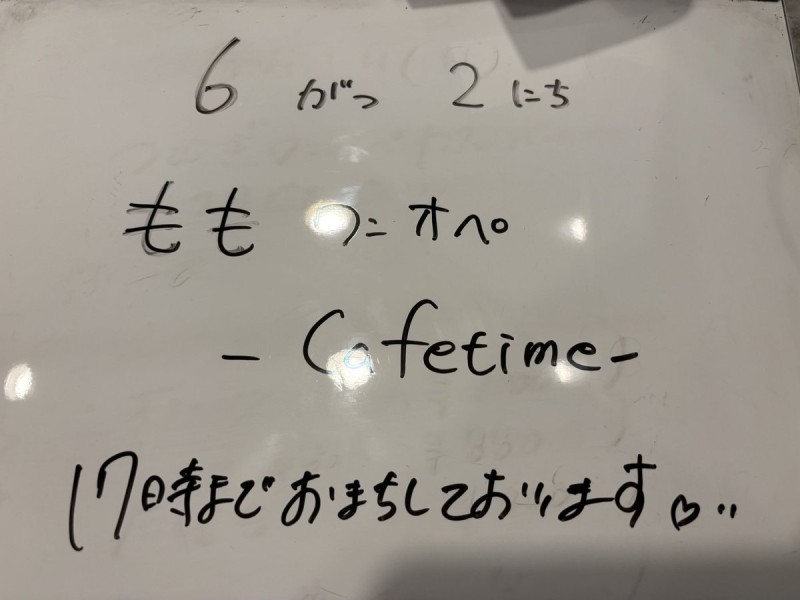 6 がつ 2 にち
もも ワンオペ
- Cafetime -
17時まで おまちしております♡..